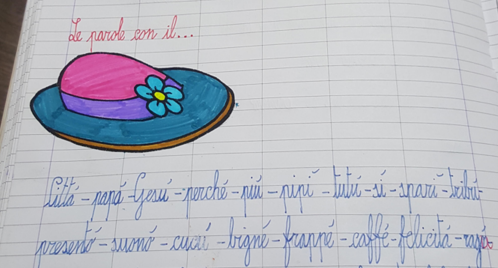 Le parole con il...
Città - papà - Gesù - perché - più - pipì - tutù - sì - sparì - tribù -
presentò - suonò - cucù - bignè - frappè - caffè - felicità - ragù